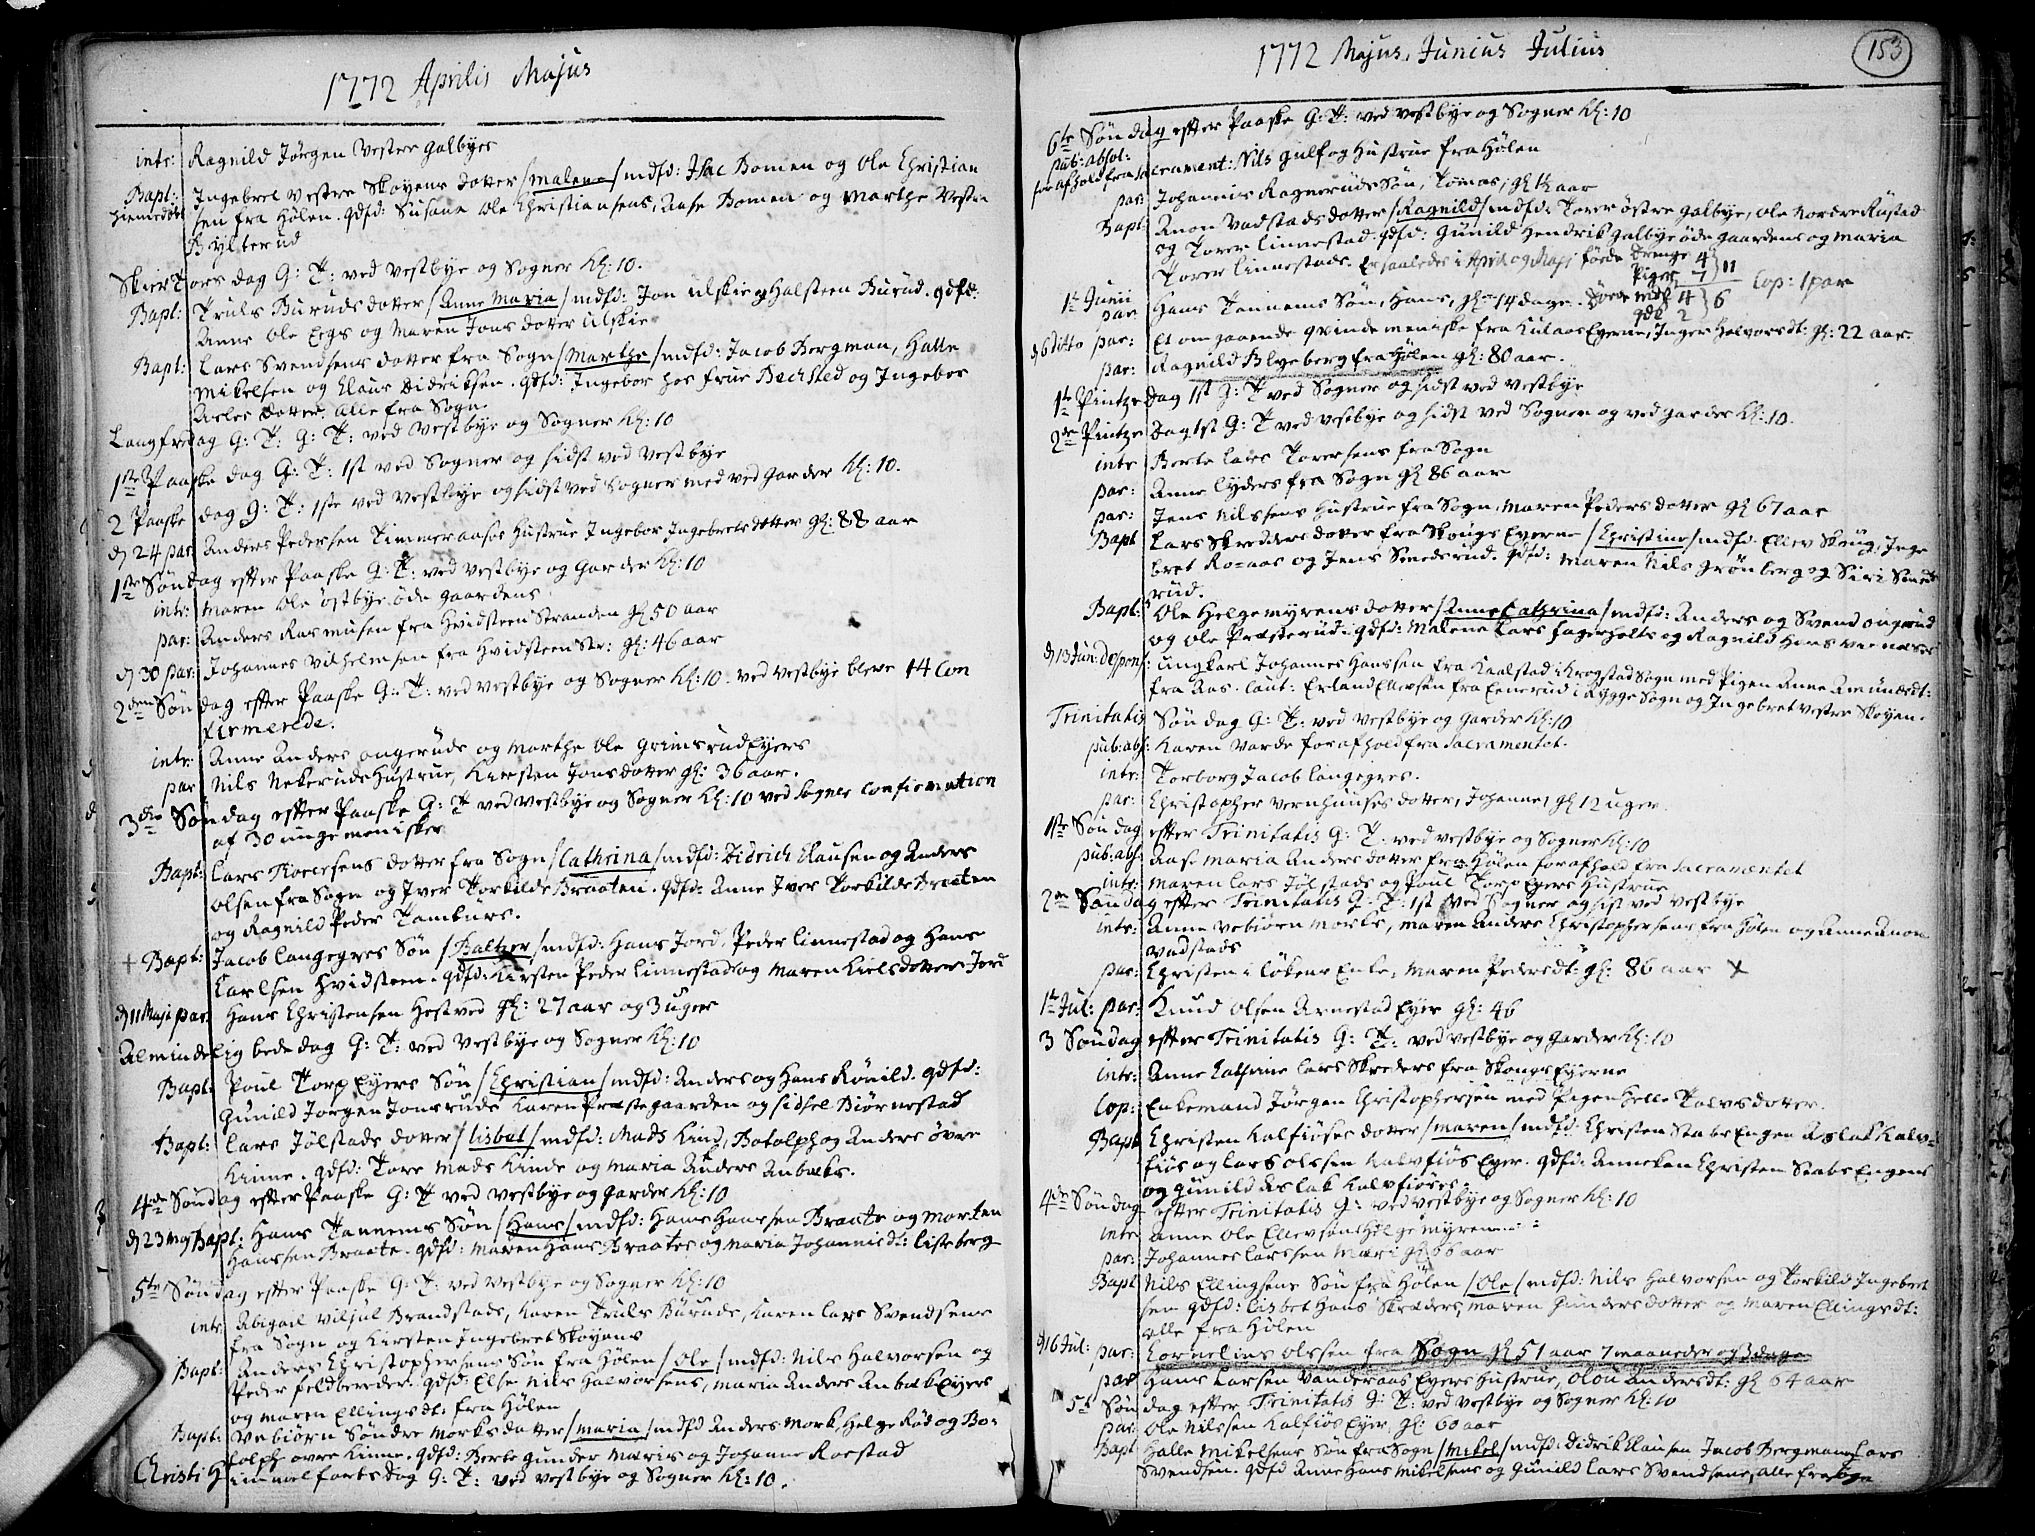 1772 Aprilis Majus
intr: Ragnild Jørgen Vestre galbyes
Bapt: Ingebret Vestre Skøyens dotter /Malene/ mdfd: Isac Bomen og Ole Christian
hiemedøbt sen fra Hølen. qdfd: Susana Ole Christiansens, Aase Bomen og Marthe Vestre
Bylterud
Skiertorsdag G: T: ved Vestbye og Sogner Kl: 10.
Bapt: Truls Buruds dotter /Anne Maria/ mdfd: Jon Ulskie og Halsteen Burud. qdfd:
Anne Ole Eegs og Maren Jons dotter Ulskie
Bapt: Lars Svendsens dotter fra Sogn /Marthe/ mdfd: Jacob Bergman, Halle
Mikelsen og Claus Didriksen. qdfd: Ingebor hos frue Bechsted og Ingebor
Axels dotter. alle fra Sogn.
Langfredag G: T: G: T: ved Vestbye og Sogner Kl: 10
1ste Paaske dag G: T: 1st ved Sogner og sidst ved Vestbye
2 Paaske dag G: T: 1ste ved Vestbye og sidst ved Sogner med ved Garder Kl: 10.
d 24 par: Anders Pedersen Timmeraases Hustrue Ingebor Ingebrets dotter gl: 88 aar
1ste Søndag efter Paaske G: T: ved Vestbye og Garder Kl: 10
intr: Maren Ole østbye øde gaardens
par: Anders Rasmusen fra Hvidsteen Stranden gl 50 aar
d 30 par: Johannes Vilhelmsen fra Hvidsteen Str: gl: 46 aar
2den Søndag efter Paaske G: T: ved Vestbye og Sogner Kl: 10. ved Vestbye bleve 14 Con
firmerede.
intr: Anne Anders ongeruds og Marthe Ole Grimsrud Eyers
par Nils Nekeruds Hustrue, Kirsten Jonsdotter gl: 36 aar.
3die Søndag efter Paaske G: T ved Vestbye og Sogner Kl: 10 ved Sogner Confirmation
af 30 unge menisker
Bapt: Lars Thoresens dotter fra Sogn /Cathrina/ mdfd: Didrich Clausen og Anders
Olsen fra Sogn og Iver Torkilds Braaten. qdfd: Anne Iver Torkilds Braaten
og Ragnild Peder Tamburs.
+ Bapt: Jacob Langegres Søn /Baltzer/ mdfd: Hans Jord, Peder Linnestad og Hans
Carlsen Hvidsteen. qdfd: Kirsten Peder Linnestads og Maren Niels dotter Jord
d 11 Maji par: Hans Christensen Hestved gl: 27 aar og 3 uger
Almindelig bededag G: T: ved Vestbye og Sogner Kl: 10
Bapt: Poul Torp Eyers Søn /Christian/ mdfd: Anders og Hans Rønild. qdfd:
Gunild Jørgen Jonsruds Karen Præstegaarden og Sidsel Biørnestad
Bapt: Lars Jølstads dotter /Lisbet/ mdfd: Mads Kind, Botolph og Anders øvre
Kinne. qdfd: Tore Mads Kinds og Maria Anders Anbæks.
4de Søndag efter Paaske G: T ved Vestbye og Garder Kl: 10
d 23 Maj Bapt: Hans Tannems Søn /Hans/ mdfd: Hans Hanssen Braate og Morten
Hanssen Braate. qdfd: Maren Hans Braates og Maria Johannisdt: Listeberg
5te Søndag efter Paaske G: T: ved Vestbye og Sogner Kl: 10
intr Abigael Viljul Brandstads, Karen Truls Buruds, Karen Lars Svendsens
fra Sogn og Kirsten Ingebret Skøyens
Bapt: Anders Christophersens Søn fra Hølen /Ole/ mdfd: Nils Halvorsen og
Peder feldbereder. qdfd: Else Nils Halvorsens, Maria Anders Anbæk Eyers
og Maren Ellingsdt: fra Hølen
Bapt: Vebiørn Søndre Morks dotter /Maria/ mdfd Anders Mork, Helge Rød og Bo-
tolph øvre Kinne. qdfd: Berte Gunder Maris og Johanne Roestad
Christi Himmelfarts dag G: T: ved Vestbye og Sogner Kl: 10.
1772 Majus. Junius Julius
153
6te Søndag efter Paaske G: T: ved Vestbye og Sogner Kl: 10
pub: absol:
for afhold fra Sacrament: Nils Gulf og Hustrue fra Hølen
par: Johannis Ragneruds Søn, Tomas, gl 1½ aar
Bapt: Anon Vadstads dotter /Ragnild/ mdfd: Torer østre galbye, Ole Nordre Rustad
og Torer Linnestad. qdfd: Gunild Hendrik Galbye øde gaardens og Maria
Torer Linnestads. Er saaledes i April og Maji fødde Drenge 4
Piger 7 } 11 Cop: 1 par
1te Junii
par Hans Tannems Søn, Hans, gl 14 dage. Døde mdk 4 } 6
qdk 2
d 6 ditto par: Et omgaaende qvinde meniske fra Kulaas Eyerne, Inger Halvorsdt: gl: 22 aar.
par: Ragnild Blyeberg fra Hølen gl: 80 aar.
1te Pintze dag 1st G: T ved Sogner og sidst ved Vestbye
2den Pintze Dag 1st G: T ved Vestbye og sidst ved Sogner og ved Garder Kl: 10.
intr Berte Lars Torersens fra Sogn
par: Anne Lyders fra Sogn gl 86 aar
par: Jens Nilssens Hustrue fra Sogn Maren Peders dotter gl 67 aar
Bapt Lars Skredders dotter fra Skougs Eyerne /Christine/ mdfd: Ellev Skoug, Inge
bret Ro=aas og Jens Smederud. qdfd: Maren Nils Grønberg og Siri Smede
rud.
Bapt: Ole Helgemyrens dotter /Anne Cathrina/ mdfd: Anders og Svend ongerud
og Ole Præsterud. qdfd: Malene Lars fagerholts og Ragnild Hans Vernæses
d 13 Jun: despens: ungkarl Johannes Hanssen fra Kaalstad i Krogstad Sogn med Pigen Anne Amundsdt:
fra Aas. Caut: Erland Ellevsen fra Enerud i Rygge Sogn og Ingebret Vestre Skøyen.
Trinitatis Søndag G: T: ved Vestbye og Garder Kl: 10
pub: abs: Karen Varde for afhold fra Sacramentet.
intr: Torborg Jacob Langegres.
par: Christopher Vernhuuses dotter, Johanne, gl 12 uger
1ste Søndag efter Trinitatis G: T: ved Vestbye og Sogner Kl: 10
pub: abs: Aase Maria Anders dotter fra Hølen for afhold fra Sacramentet
intr: Maren Lars Jølstads og Poul Torp Eyers Hustrue
2den Søndag efter Trinitatis G: T: 1st ved Sogner og sist ved Vestbye
intr: Anne Vebiørn Morks, Maren Anders Christophersens fra Hølen og Anne Anon
Vadstads
par: Christen i Løkens Enke, Maren Pedersdt: gl: 86 aar X
1te Jul: par: Knud Olsen Arnestad Eyer gl: 46
3 Søndag efter Trinitatis G: T: ved Vestbye og Garder Kl: 10
intr: Anne Cathrine Lars Skreders fra Skougs Eyerne
Cop: Enkemand Jørgen Christophersen med Pigen Helle Talvsdotter.
Bapt Christen Kalfiøses dotter /Maren/ mdfd: Christen Stabs Engen Aslak Kalv-
fiøs og Lars Olssen Kalvfiøs Eyer. qdfd: Anneken Christen Stabs Engens
og Gunild Aslak Kalvfiøses.
4de Søndag efter Trinitatis G: ved Vestbye og Sogner Kl: 10
intr Anne Ole Ellevsøns Helgemyren
par: Johannes Larssen Mari gl 66 aar
Bapt Nils Ellingsens Søn fra Hølen /Ole/ mdfd: Nils Halvorsen og Torkild Ingebret
sen qdfd: Lisbet Hans Skræders, Maren Gunders dotter og Maren Ellingsdt:
alle fra Hølen
d 16 Jul: par: Cornelius Olssen fra Sogn gl 51 aar 7 maaneder og 3 dage
par Hans Larsen Vanderaas Eyers Hustrue, Olou Andersdt: gl 64 aar
5te Søndag efter Trinitatis G: T: ved Vestbye og Sogner Kl: 10
par: Ole Nilssen Kalfiøs Eyer gl: 60 aar
Bapt Halle Mikelsens Søn fra Sogn /Mikel/ mdfd: Didrik Clausen Jacob Bergman Lars
Svendsen. qdfd Anne Hans Mikelsens og Gunild Lars Svendsens, alle fra Sogn